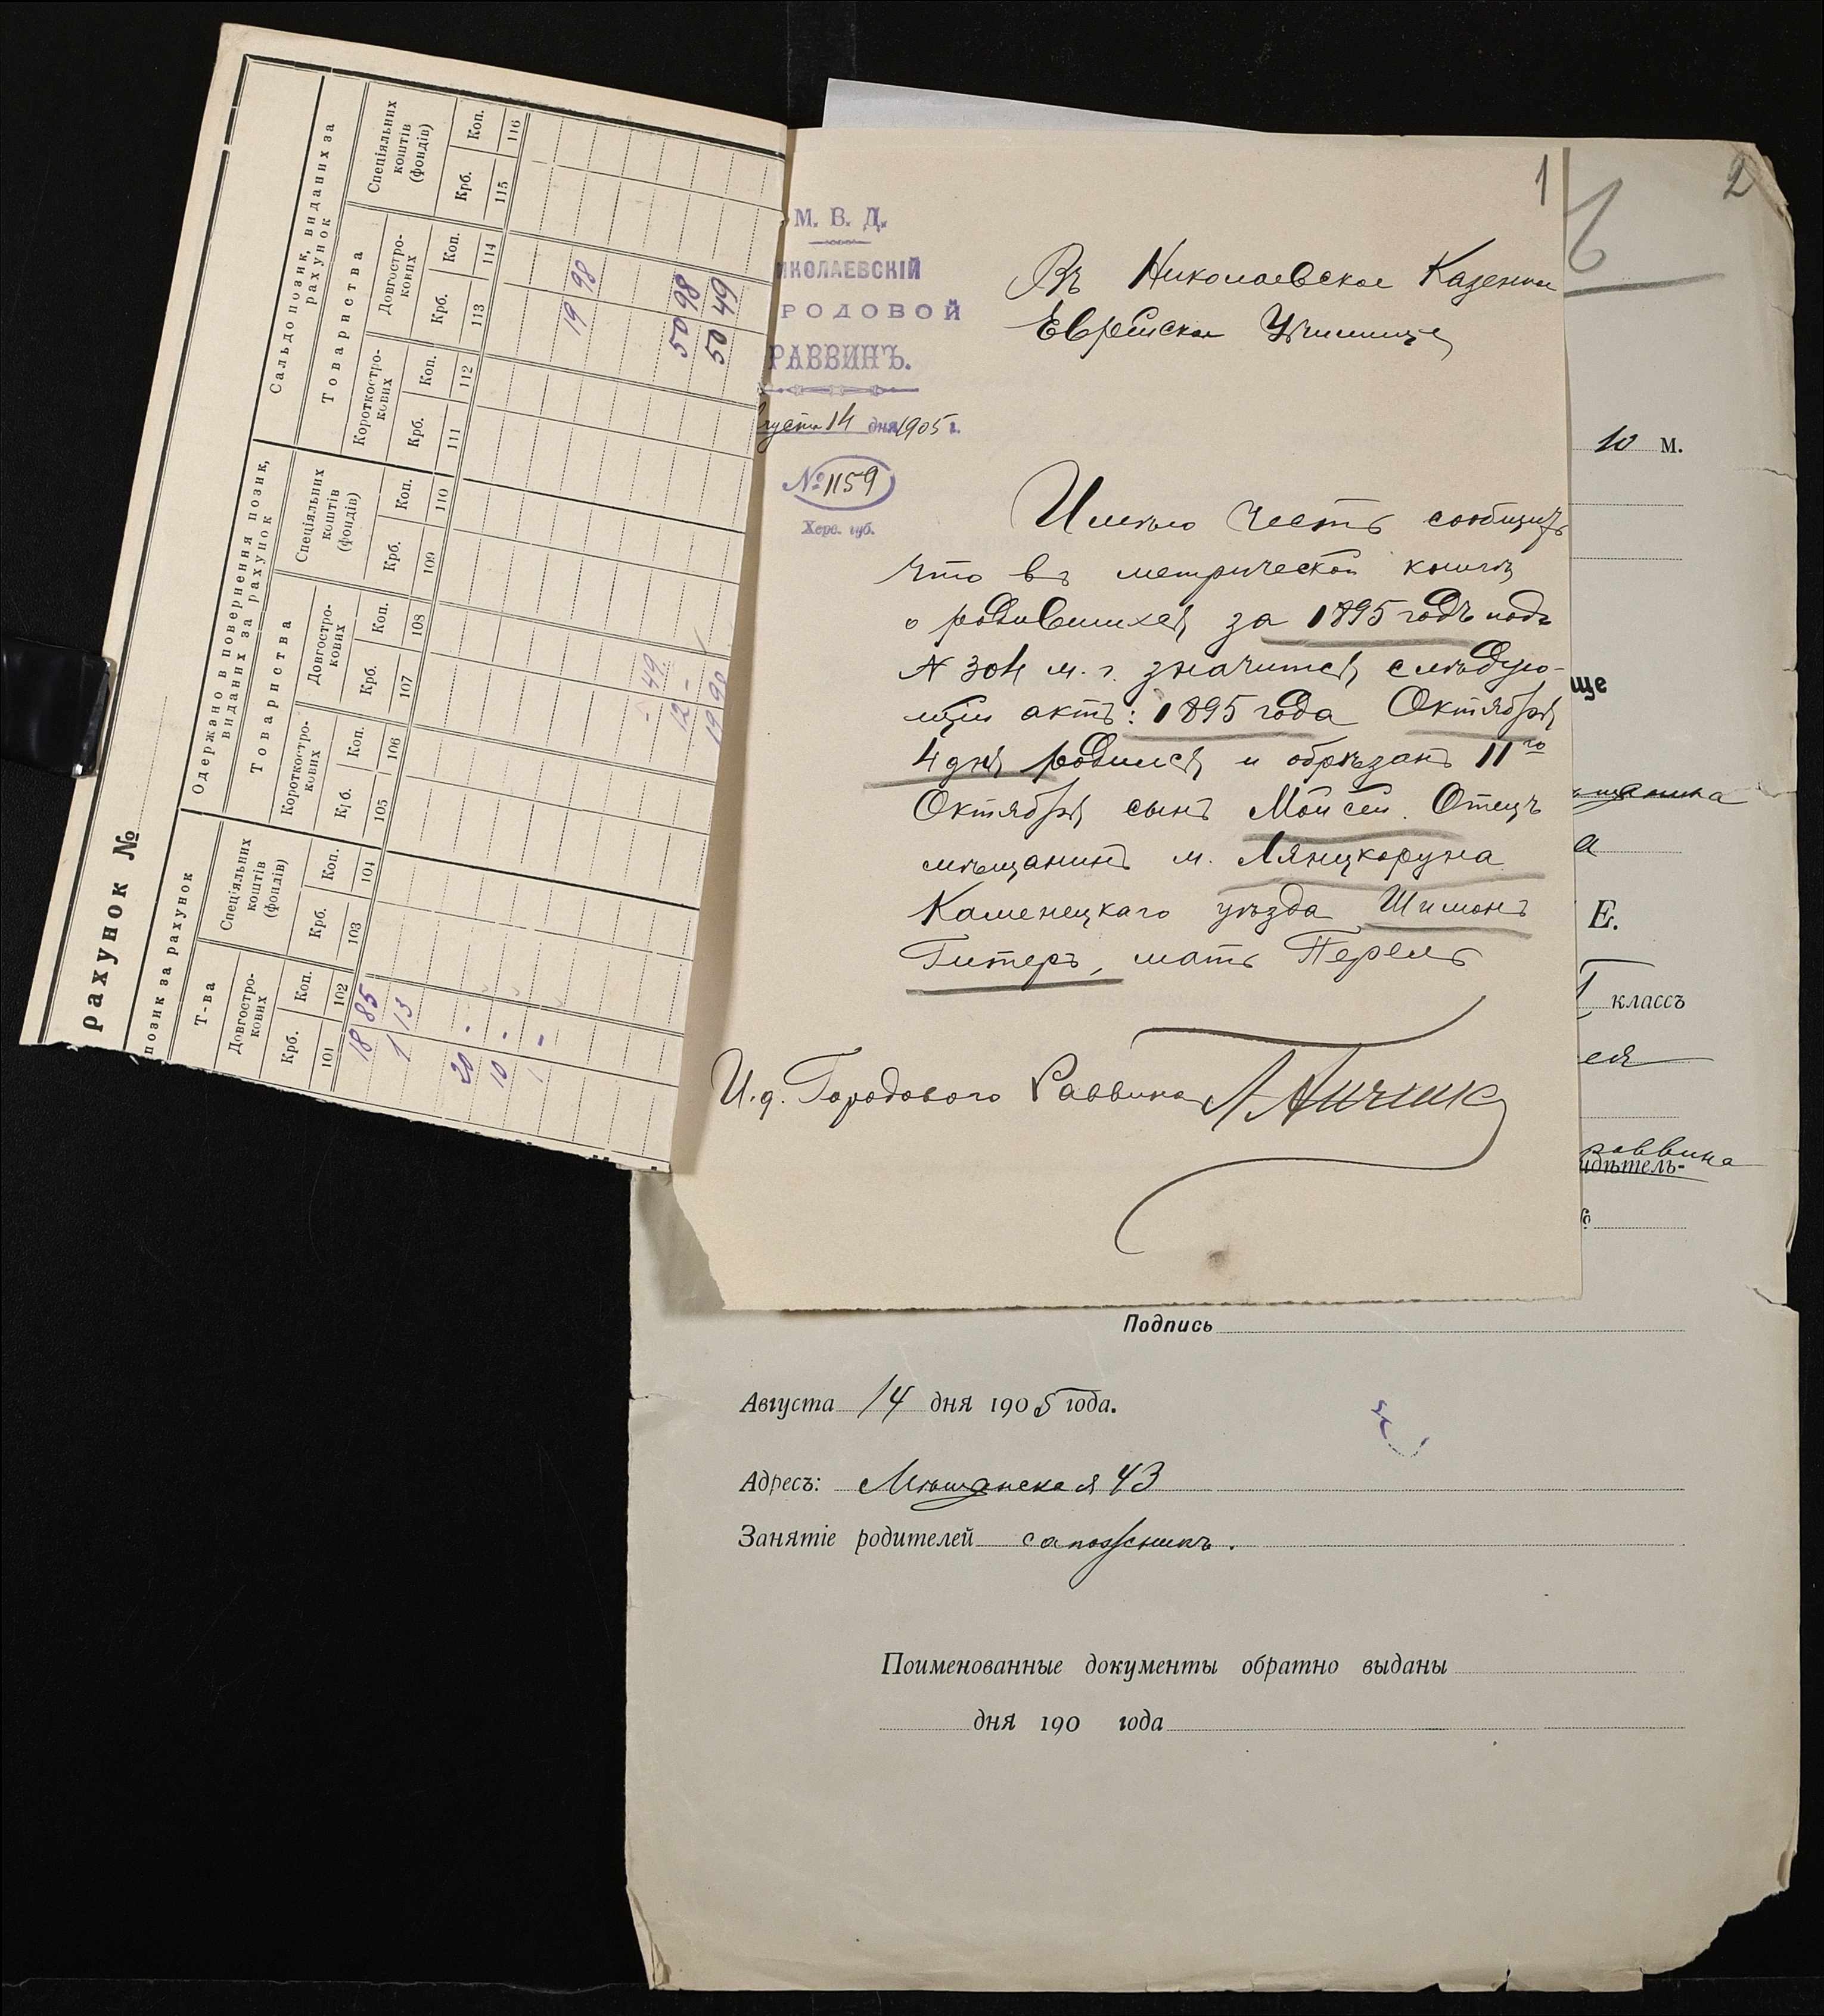 рахунок №
позик за рахунок
Т-ва
Довгостро-
кових
Спеціяльних
коштів
(фондів)
Крб. Коп. Крб. Коп.
101 102 103 104
18 85
1 13
20 -
10 -
1 -
Одержано в повернення позик,
виданих за рахунок
Товариства
Короткостро-
кових
Довгостро-
кових
Спеціяльних
коштів
(фондів)
Крб. Коп. Крб. Коп. Крб. Коп.
105 106 107 108 109 110
- 49
12 -
19 90
Сальдо позик, виданих за
рахунок
Товариства
Короткостро-
кових
Довгостро-
кових
Спеціяльних
коштів
(фондів)
Крб. Коп. Крб. Коп. Крб. Коп.
111 112 113 114 115 116
19 98
50 98
50 49
1
2
М. В. Д.
ИКОЛАЕВСКІЙ
РОДОВОЙ
РАВВИНЪ.
густа 14 дня 1905 г.
№ 1159
Херс. губ.
Въ Николаевское Казенное
Еврейское Училище
Имѣю честь сообщить
что въ метрической книгѣ
о родившихся за 1895 годъ подъ
N 304 м. г. значится слѣдую-
щій актъ: 1895 года Октября
4 дня родился и обрѣзанъ 11го
Октября сынъ Мойсей. Отецъ
мѣщанинъ м. Лянцкоруна
Каменецкаго уѣзда Шимонъ
Гитеръ, мать Перель
И. д. Городового Раввина
10 м.
ще
щанина
а
Е.
I классъ
ея
раввина
идѣтель-
Подпись
Августа 14 дня 1905 года.
Адресъ: Мѣщанская 43
Занятіе родителей сапожникъ.
Поименованные документы обратно выданы
дня 190 года